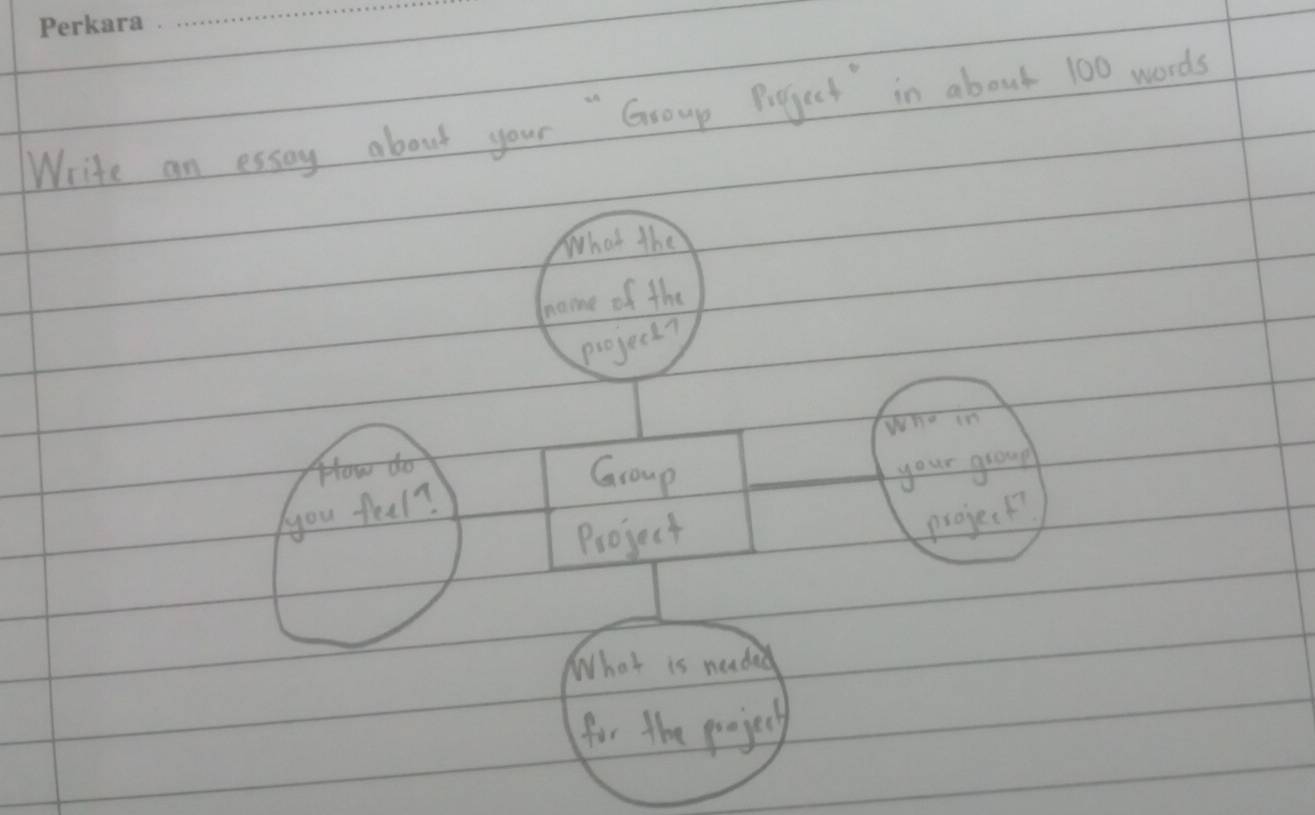 Perkara
Write an essay about your "Group Project" in about 100 words
What the
name of the
project?
How do
you feel?
Group
Project
Who in
your group
project?
What is needed
for the project